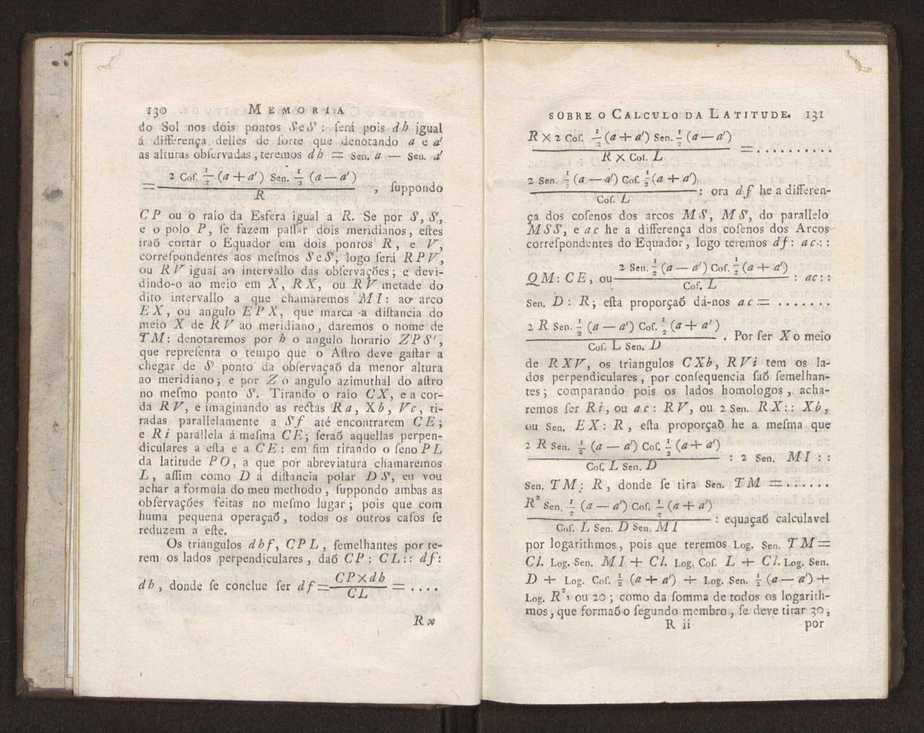 130 MEMORIA
do Sol nos dois pontos S e S': ſerá pois db igual
á differença delles de ſorte que denotando a e a'
as alturas obſervadas, teremos db = Sen. a — Sen. a'
= 2 Coſ. 1/2 (a + a') Sen. 1/2 (a — a') / R , ſuppondo
CP ou o raio da Esfera igual a R. Se por S, S',
e o polo P, ſe fazem paſſar dois meridianos, eſtes
iraõ cortar o Equador em dois pontos R, e V,
correſpondentes aos meſmos S e S', logo ſerá RPV,
ou RV igual ao intervallo das obſervações; e devi-
dindo-o ao meio em X, RX, ou RV metade do
dito intervallo a que chamaremos MI: ao arco
EX, ou angulo EPX, que marca a diſtancia do
meio X de RV ao meridiano, daremos o nome de
TM: denotaremos por h o angulo horario ZPS',
que repreſenta o tempo que o Aſtro deve gaſtar a
chegar de S' ponto da obſervaçaõ da menor altura
ao meridiano; e por Z o angulo azimuthal do aſtro
no meſmo ponto S'. Tirando o raio CX, e a cor-
da RV, e imaginando as rectas Ra, Xb, Vc, ti-
radas parallelamente a Sf até encontrarem CE;
e Ri parallela á meſma CE; ſeraõ aquellas perpen-
diculares a eſta e a CE: em fim tirando o ſeno PL
da latitude PO, a que por abreviatura chamaremos
L, aſſim como D á diſtancia polar DS', eu vou
achar a formula do meu methodo, ſuppondo ambas as
obſervações feitas no meſmo lugar; pois que com
huma pequena operaçaõ, todos os outros caſos ſe
reduzem a eſte.
Os triangulos dbf, CPL, ſemelhantes por te-
rem os lados perpendiculares, daõ CP: CL:: df:
db, donde ſe conclue ſer df = CP×db / CL = ....
R ×
SOBRE O CALCULO DA LATITUDE. 131
R × 2 Coſ. 1/2 (a + a') Sen. 1/2 (a — a') / R × Coſ. L = .........
2 Sen. 1/2 (a — a') Coſ. 1/2 (a + a') / Coſ. L : ora df he a differen-
ça dos coſenos dos arcos MS', MS, do parallelo
MSS, e ac he a differença dos coſenos dos Arcos
correſpondentes do Equador, logo teremos df: ac::
QM: CE, ou 2 Sen. 1/2 (a — a') Coſ. 1/2 (a + a') / Coſ. L : ac::
Sen. D: R; eſta proporçaõ dá-nos ac = .......
2 R Sen. 1/2 (a — a') Coſ. 1/2 (a + a') / Coſ. L Sen. D . Por ſer X o meio
de RXV, os triangulos CXb, RVi tem os la-
dos perpendiculares, por conſequencia ſaõ ſemelhan-
tes; comparando pois os lados homologos, acha-
remos ſer Ri, ou ac: RV, ou 2 Sen. RX:: Xb,
ou Sen. EX: R, eſta proporçaõ he a meſma que
2 R Sen. 1/2 (a — a') Coſ. 1/2 (a + a') / Coſ. L Sen. D : 2 Sen. MI ::
Sen. TM: R, donde ſe tira Sen. TM = ......
R² Sen. 1/2 (a — a') Coſ. 1/2 (a + a') / Coſ. L Sen. D Sen. MI : equaçaõ calculavel
por logarithmos, pois que teremos Log. Sen. TM =
Cl. Log. Sen. MI + Cl. Log. Coſ. L + Cl. Log. Sen.
D + Log. Coſ. 1/2 (a + a') + Log. Sen. 1/2 (a — a') +
Log. R², ou 20; como da ſomma de todos os logarith-
mos, que formaõ o ſegundo membro, ſe deve tirar 30,
R ii por